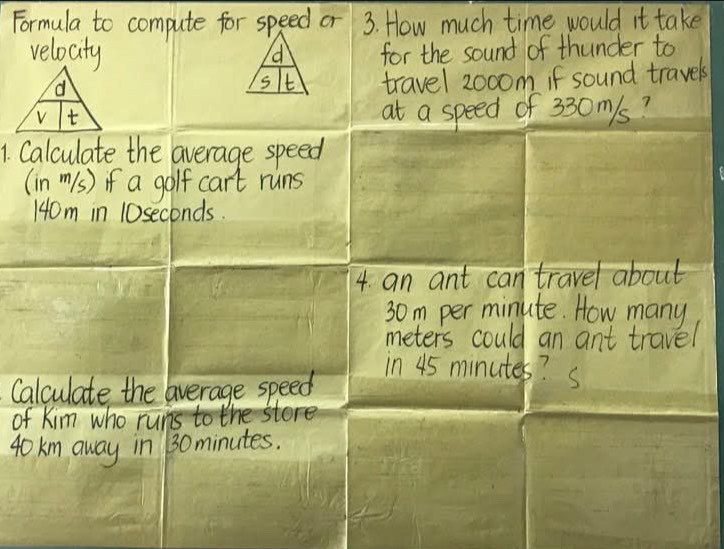 Formula to compute for speed or
velocity
d
s t
d
v t
1. Calculate the average speed
(in m/s) if a golf cart runs
140m in 10seconds.
Calculate the average speed
of Kim who runs to the store
40 km away in 30 minutes.
3. How much time would it take
for the sound of thunder to
travel 2000m if sound travels
at a speed of 330m/s?
4. an ant can travel about
30 m per minute. How many
meters could an ant travel
in 45 minutes? S